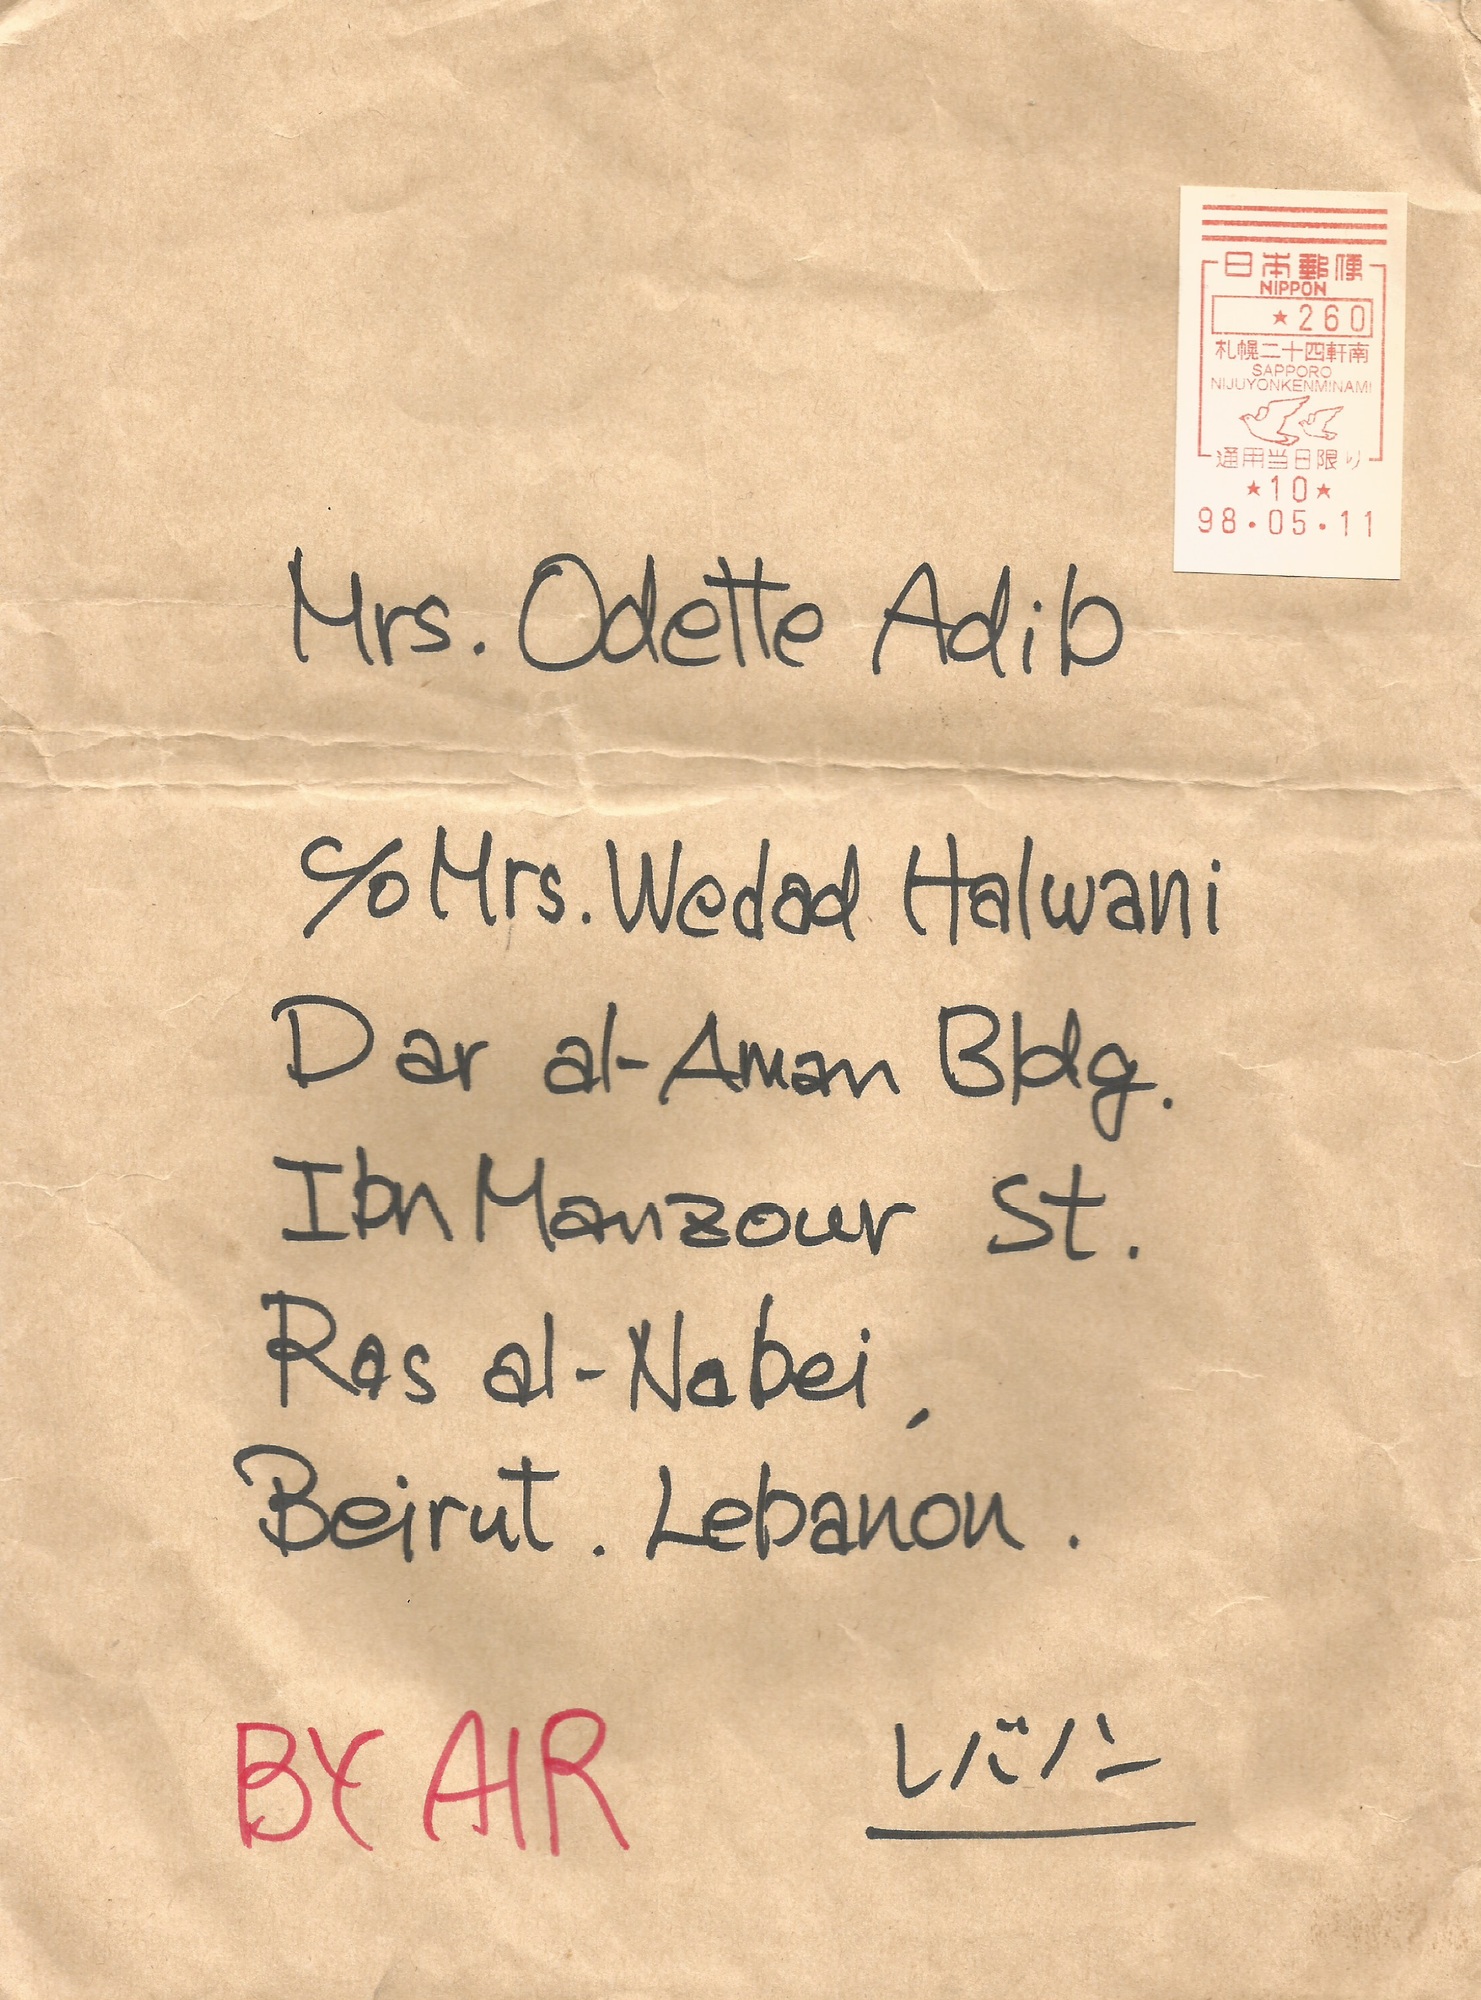 日本郵便
NIPPON
★260
札幌二十四軒南
SAPPORO
NIJUYONKENMINAMI
通用当日限り
★10★
98・05・11
Mrs. Odette Adib
c/o Mrs. Wedad Halwani
Dar al-Aman Bldg.
Ibn Manzour St.
Ras al-Nabei,
Beirut. Lebanon.
BY AIR
レバノン